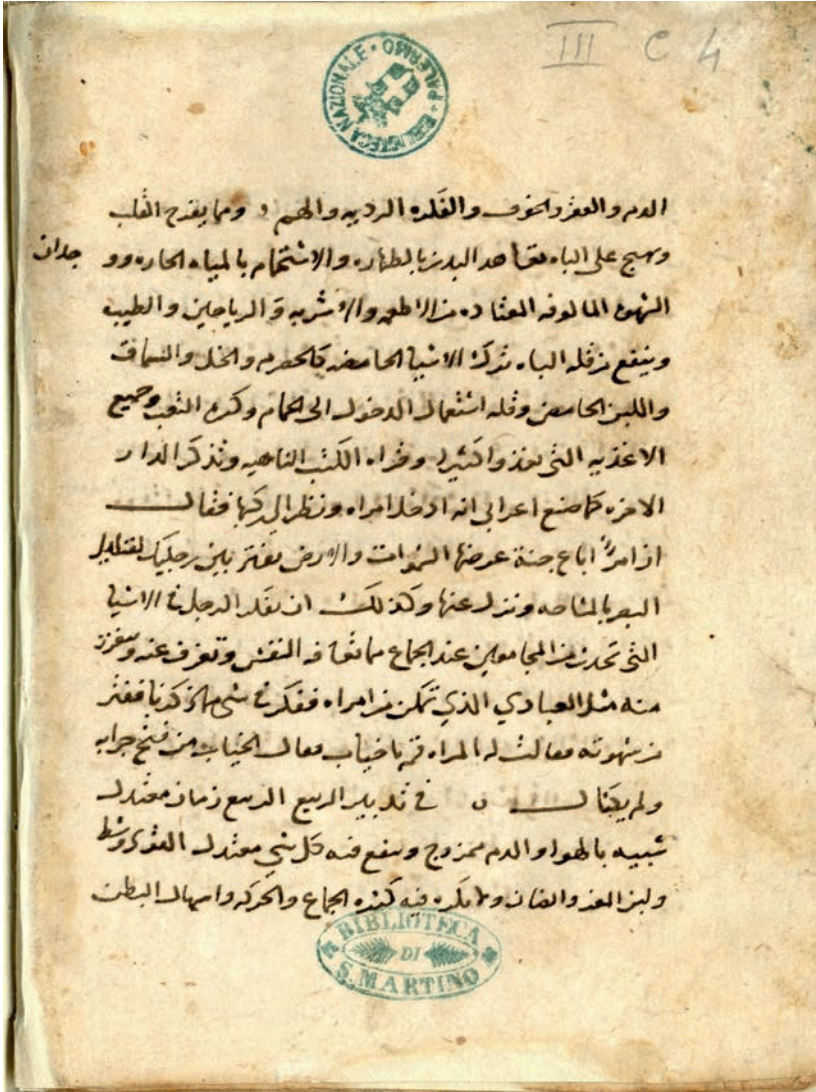 III C 4
BIBLIOTECA NAZIONALE • PALERMO
والفقر والخوف والفكره الرديه والهم ومما يفرح القلب
جدان
على الباه البدن بالطهاره والاستحمام بالمياه الحاره وو
المالوفه المعتاده من الاطعمه والاشربه والرياحين والطيب
وينفع من قله الباه ترك الاشيا الحامضه كالحصرم والخل والسماق
واللبن الحامض وقله استعمال الدخول الى الحمام وكثره التعب وجميع
الاغذيه التى وقراه الكتب الناهيه وتذكر الدار
الاخره كما صنع اعرابي انه امراه ونظر الى فقال
ان امرأ اباع جنة عرضها السموات والارض بفتر بين رجليك لقليل
البصر بالمساحه ونزل عنها وكذلك ان الرجل في الاشيا
التى تحدث من المجامعين عند الجماع مما النفس وتعزف عنه
منه مثل العبادي الذي تمكن من امراه ففكر في شي ففتر
من شهوته فقالت له المراه قم يا خياب فقال الخياب من فتح جرابه
ولم يكتال في تدبير الربيع الربيع زمان معتدل
شبيه بالهوا والدم ممزوج وينفع فيه كل شي معتدل
ولبن المعز والضان فيه كثره الجماع والحركه واسهال البطن
BIBLIOTECA
DI
S. MARTINO